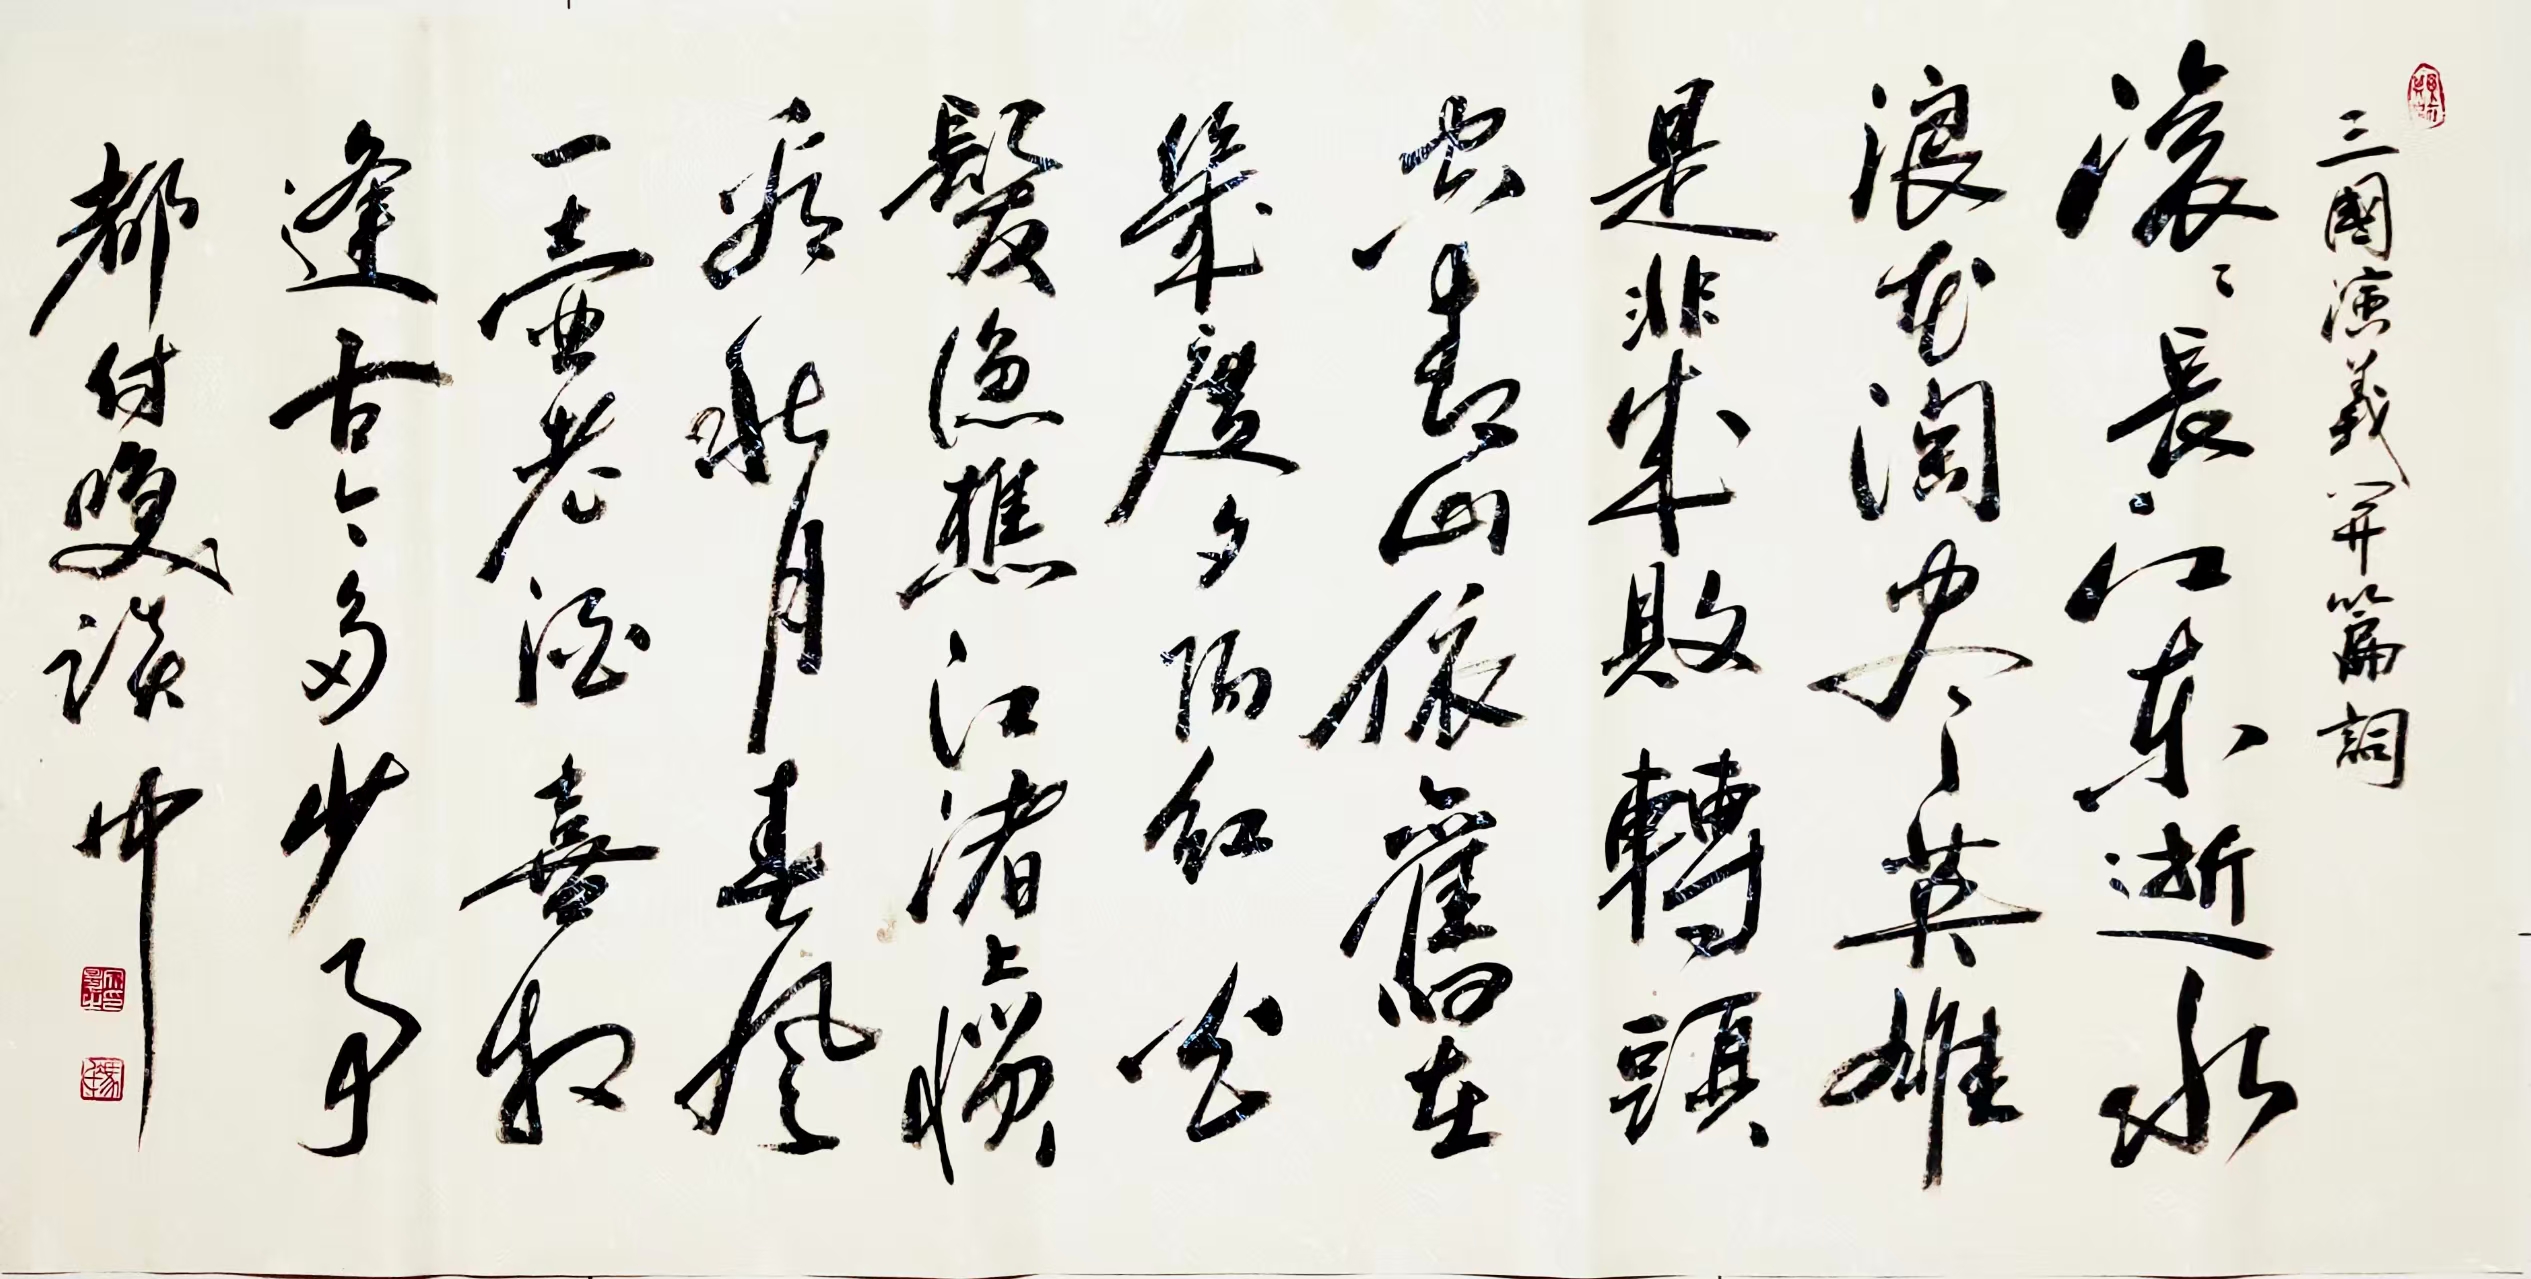 三國演義開篇詞
滾々長江東逝水
浪花淘尽英雄
是非成敗轉頭
空青山依舊在
幾度夕陽紅白
髮漁樵江渚上慣
看秋月春風
一壺老酒喜相
逢古今多少事
都付笑談中